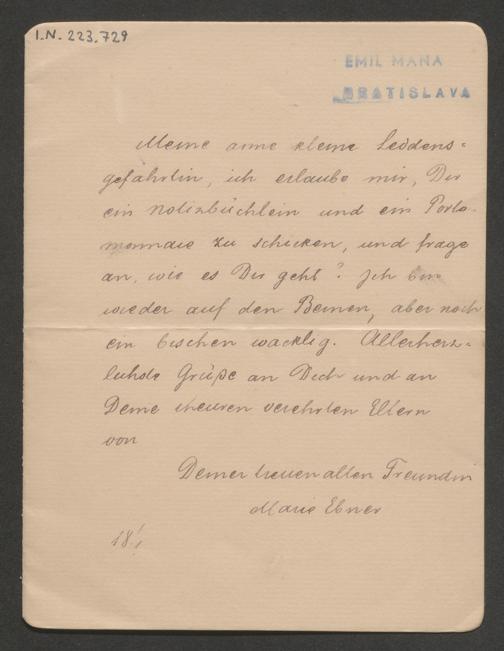 I.N. 223.729
EMIL MANA
BRATISLAVA
Meine arme kleine Leidens=
gefährtin, ich erlaube mir, Dir
ein Notizbüchlein und ein Porte-
monnaie zu schicken, und frage
an, wie es Dir geht? Ich bin
wieder auf den Beinen, aber noch
ein bischen wacklig. Allerherz=
lichste Grüße an Dich und an
Deine theuren verehrten Eltern
von
Deiner treuen alten Freundin
Marie Ebner
18/1